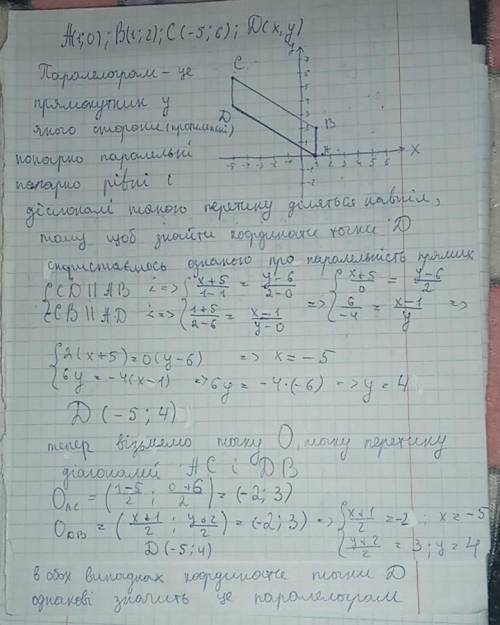 A(1;0); B(1;2); C(-5;6); D(x,y)
Паралелограм - це
прямокутник у
якого сторони (протилежні)
попарно паралельні
попарно рівні і
діагоналі точкою перетину діляться навпіл,
тому щоб знайти координати точки D
скористаємось ознакою про паралельність прямих
{CD || AB <=> {(x+5)/(1-1) = (y-6)/(2-0) => {(x+5)/0 = (y-6)/2
{CB || AD <=> {(1+5)/(2-6) = (x-1)/(y-0) => {6/-4 = (x-1)/y =>
{2(x+5)=0(y-6) => x=-5
{6y=-4(x-1) => 6y=-4·(-6) => y=4
D(-5;4)
тепер візьмемо точку O, точку перетину
діагоналей AC і DB
O_AC = ((1-5)/2 ; (0+6)/2) = (-2;3)
O_DB = ((x+1)/2 ; (y+2)/2) = (-2;3) => {(x+1)/2 = -2 ; x=-5
D(-5;4) {(y+2)/2 = 3; y=4
в обох випадках координати точки D
однакові значить це паралелограм
C
D
B
A
x
y